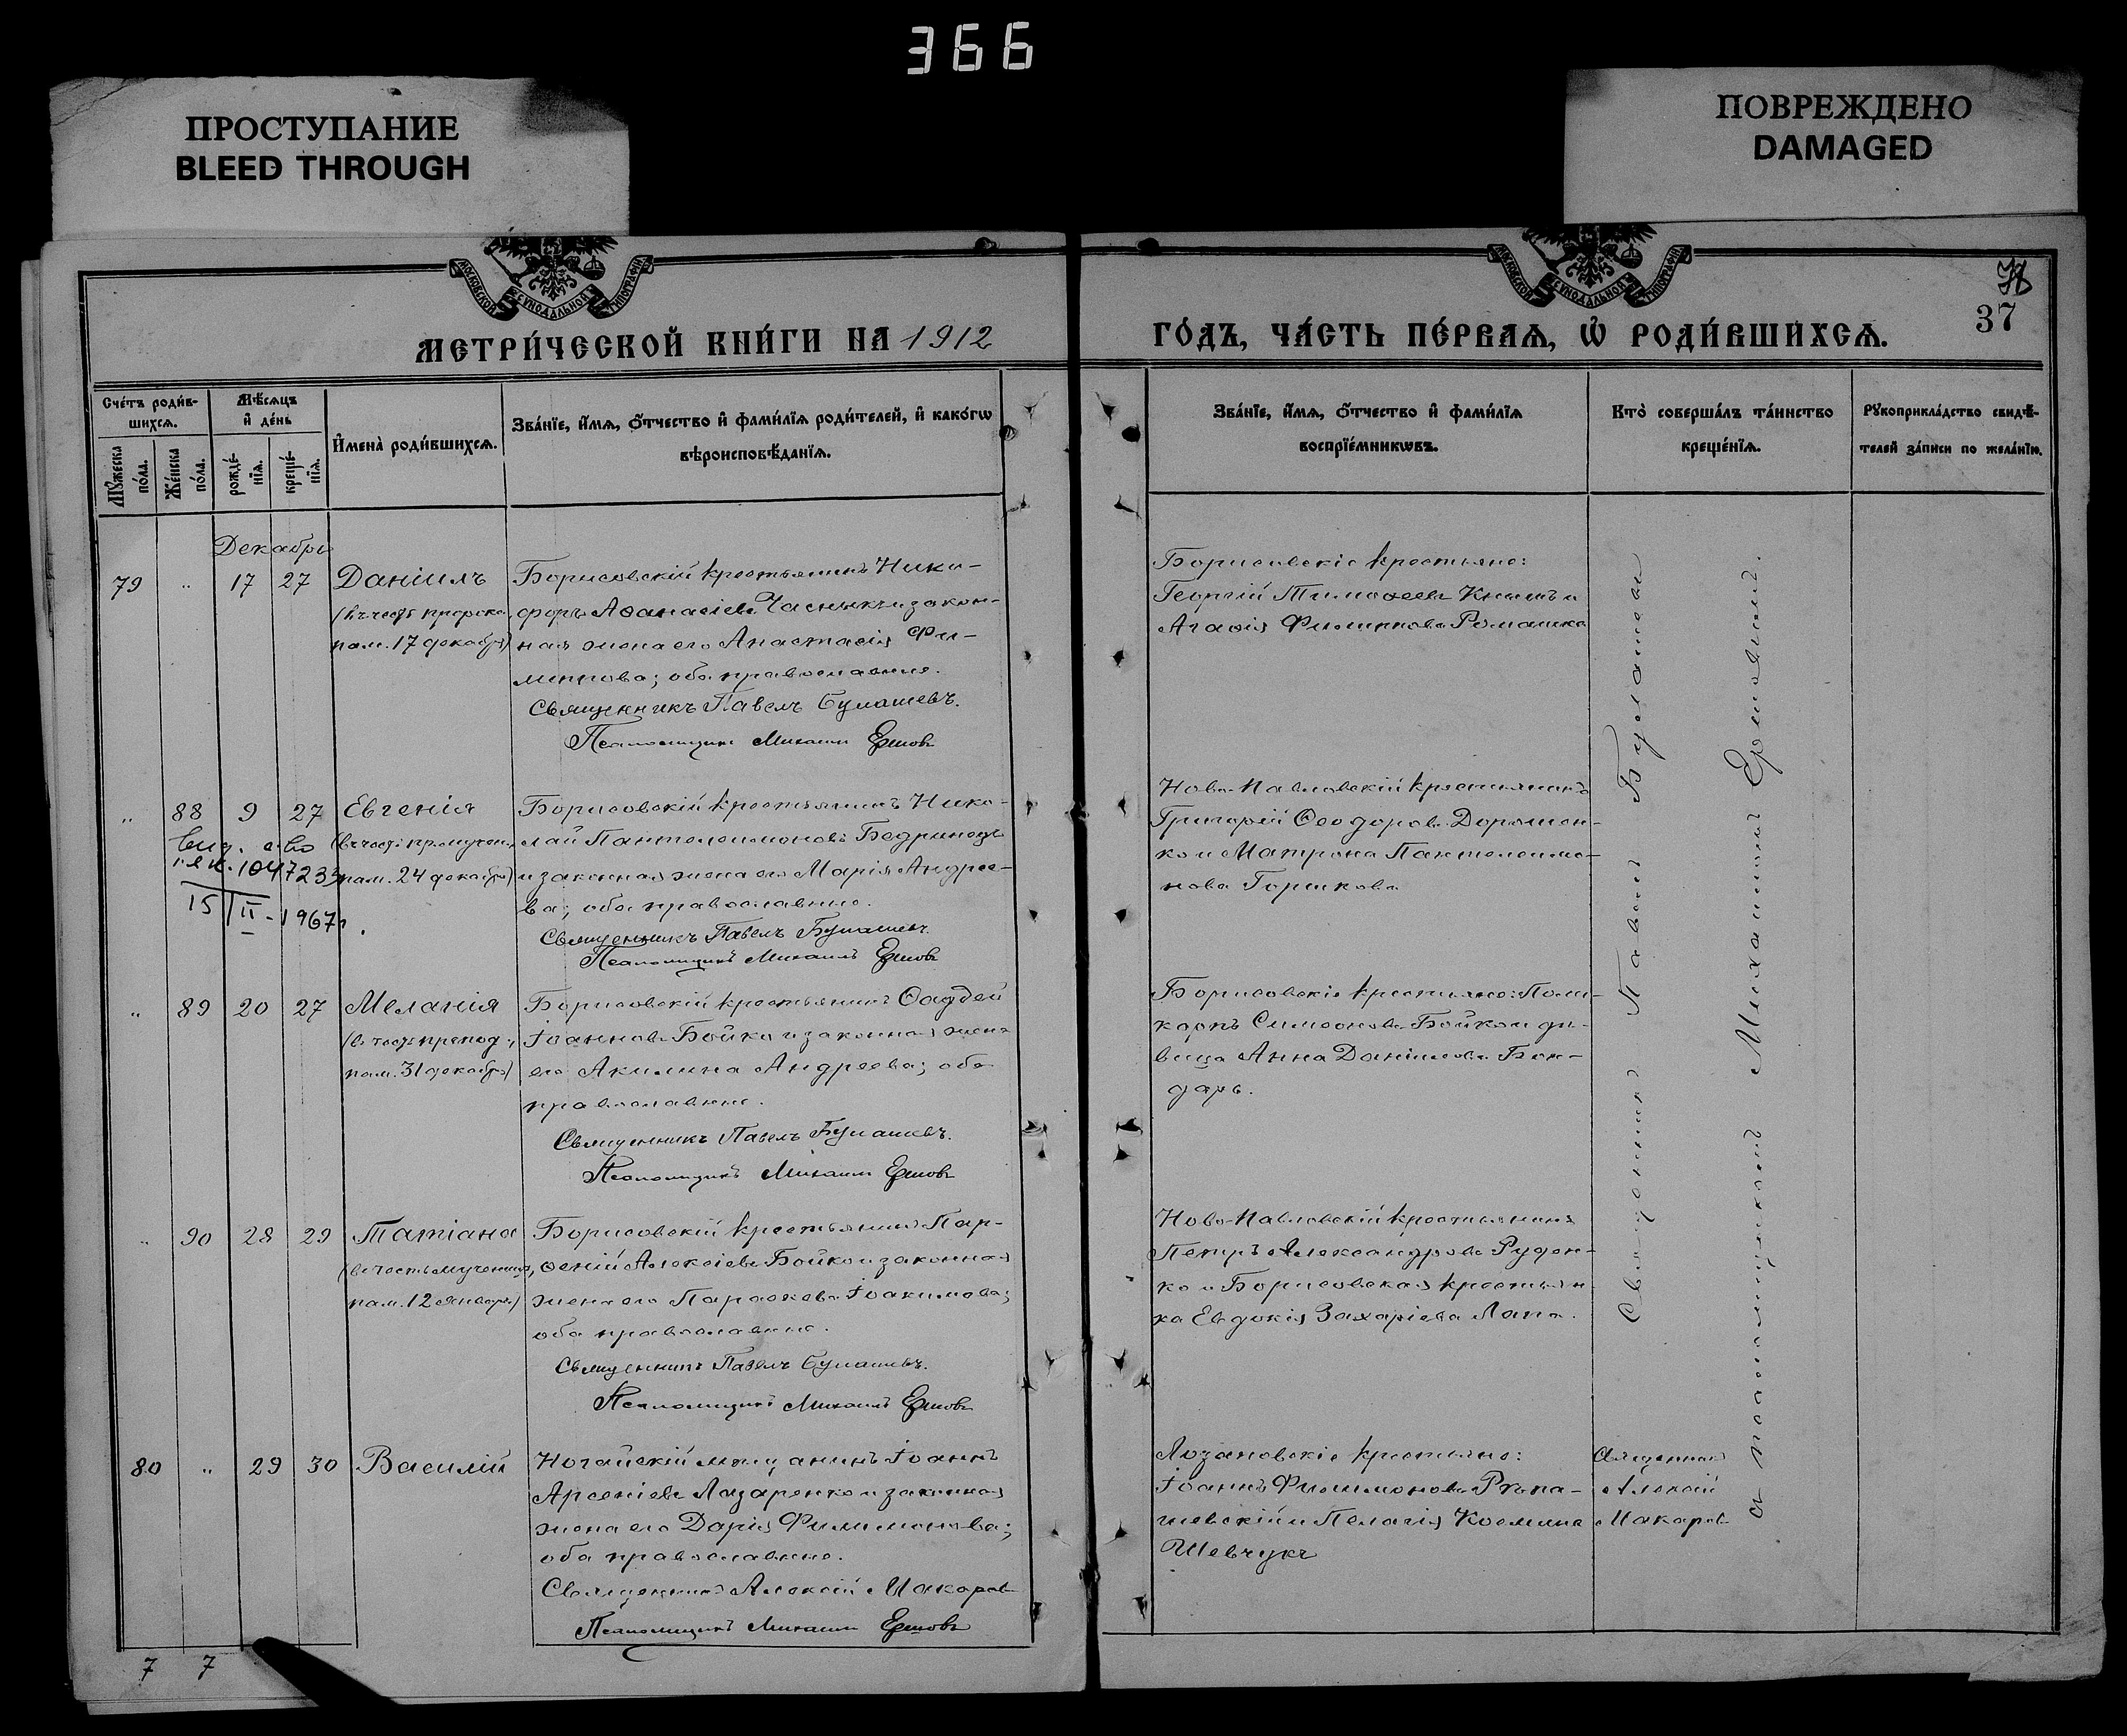 366
ПРОСТУПАНИЕ
BLEED THROUGH
ПОВРЕЖДЕНО
DAMAGED
МОСКОВСКОЙ СѴНОДАЛЬНОЙ ТИПОГРАФІИ
МОСКОВСКОЙ СѴНОДАЛЬНОЙ ТИПОГРАФІИ
37
МЕТРИ́ЧЕСКОЙ КНИ́ГИ НА 1912
ГО́ДЪ, ЧА́СТЬ ПЕ́РВАЯ, Ѡ҆ РОДИ́ВШИХСЯ.
Сче́тъ роди́в-
шихся.
Мꙋ́жеска по́ла.
Же́нска по́ла.
Мѣ́сяцъ
и҆ де́нь
рожде́-нїя.
креще́-нїя.
И҆мена̀ роди́вшихся.
Зва́нїе, и҆́мя, ѻ҆́тчество и҆ фами́лїя роди́телей, и҆ како́гѡ
вѣроисповѣ́данїя.
Зва́нїе, и҆́мя, ѻ҆́тчество и҆ фами́лїя
воспрїе́мникѡвъ.
Кто̀ соверша́лъ та́инство
креще́нїя.
Рꙋкоприкла́дство свидѣ́-
телей за́писи по жела́нїю.
Декабрь
79 " 17 27 Даніилъ
(въ честь пророка,
пам. 17 декабря)
Борисовскій крестьянинъ Ники-
форъ Аѳанасіевъ Часныкъ и закон-
ная жена его Анастасія Фи-
липпова; оба православные.
Священникъ Павелъ Булашевъ.
Псаломщикъ Михаилъ Ершовъ
Борисовскіе крестьяне:
Георгій Тимоѳеевъ Кнышъ и
Агаѳія Филиппова Ромашка
" 88 9 27 Евгенія
(въ честь прмучен.,
пам. 24 декабря)
Выд. св-во
1047233
15/II-1967г.
Борисовскій крестьянинъ Нико-
лай Пантелеимоновъ Бедринецъ
и законная жена его Марія Андрее-
ва; оба православные.
Священникъ Павелъ Булашевъ.
Псаломщикъ Михаилъ Ершовъ
Ново-Павловскій крестьянинъ
Григорій Ѳеодоровъ Дорошен-
ко и Матрона Пантелеимо-
нова Горшкова
" 89 20 27 Меланія
(въ честь препод.,
пам. 31 декабря)
Борисовскій крестьянинъ Ѳаддей
Іоанновъ Бойко и законная жена
его Акилина Андреева; оба
православные.
Священникъ Павелъ Булашевъ.
Псаломщикъ Михаилъ Ершовъ
Борисовскіе крестьяне: Поли-
карпъ Симеоновъ Бойко и дѣ-
вица Анна Даніилова Бон-
дарь.
" 90 28 29 Татіана
(въ честь мученицы,
пам. 12 января)
Борисовскій крестьянинъ Пар-
ѳеній Алексіевъ Бойко и законная
жена его Параскева Іоакимова;
оба православные.
Священникъ Павелъ Булашевъ.
Псаломщикъ Михаилъ Ершовъ
Ново-Павловскій крестьянинъ
Петръ Александровъ Руден-
ко и Борисовская крестьян-
ка Евдокія Захаріева Лапа.
Священникъ Павелъ Булашевъ
а псаломщикомъ Михаилъ Ершовъ
80 " 29 30 Василій
Ногайскій мѣщанинъ Іоаннъ
Арсеніевъ Лазаренко и законная
жена его Дарія Филимонова;
оба православные.
Священникъ Алексій Макаровъ
Псаломщикъ Михаилъ Ершовъ
Лозановскіе крестьяне:
Іоаннъ Филимоновъ Рѣпа-
шевскій и Пелагія Косьмина
Шевчукъ
Священникъ
Алексій
Макаровъ
7 7